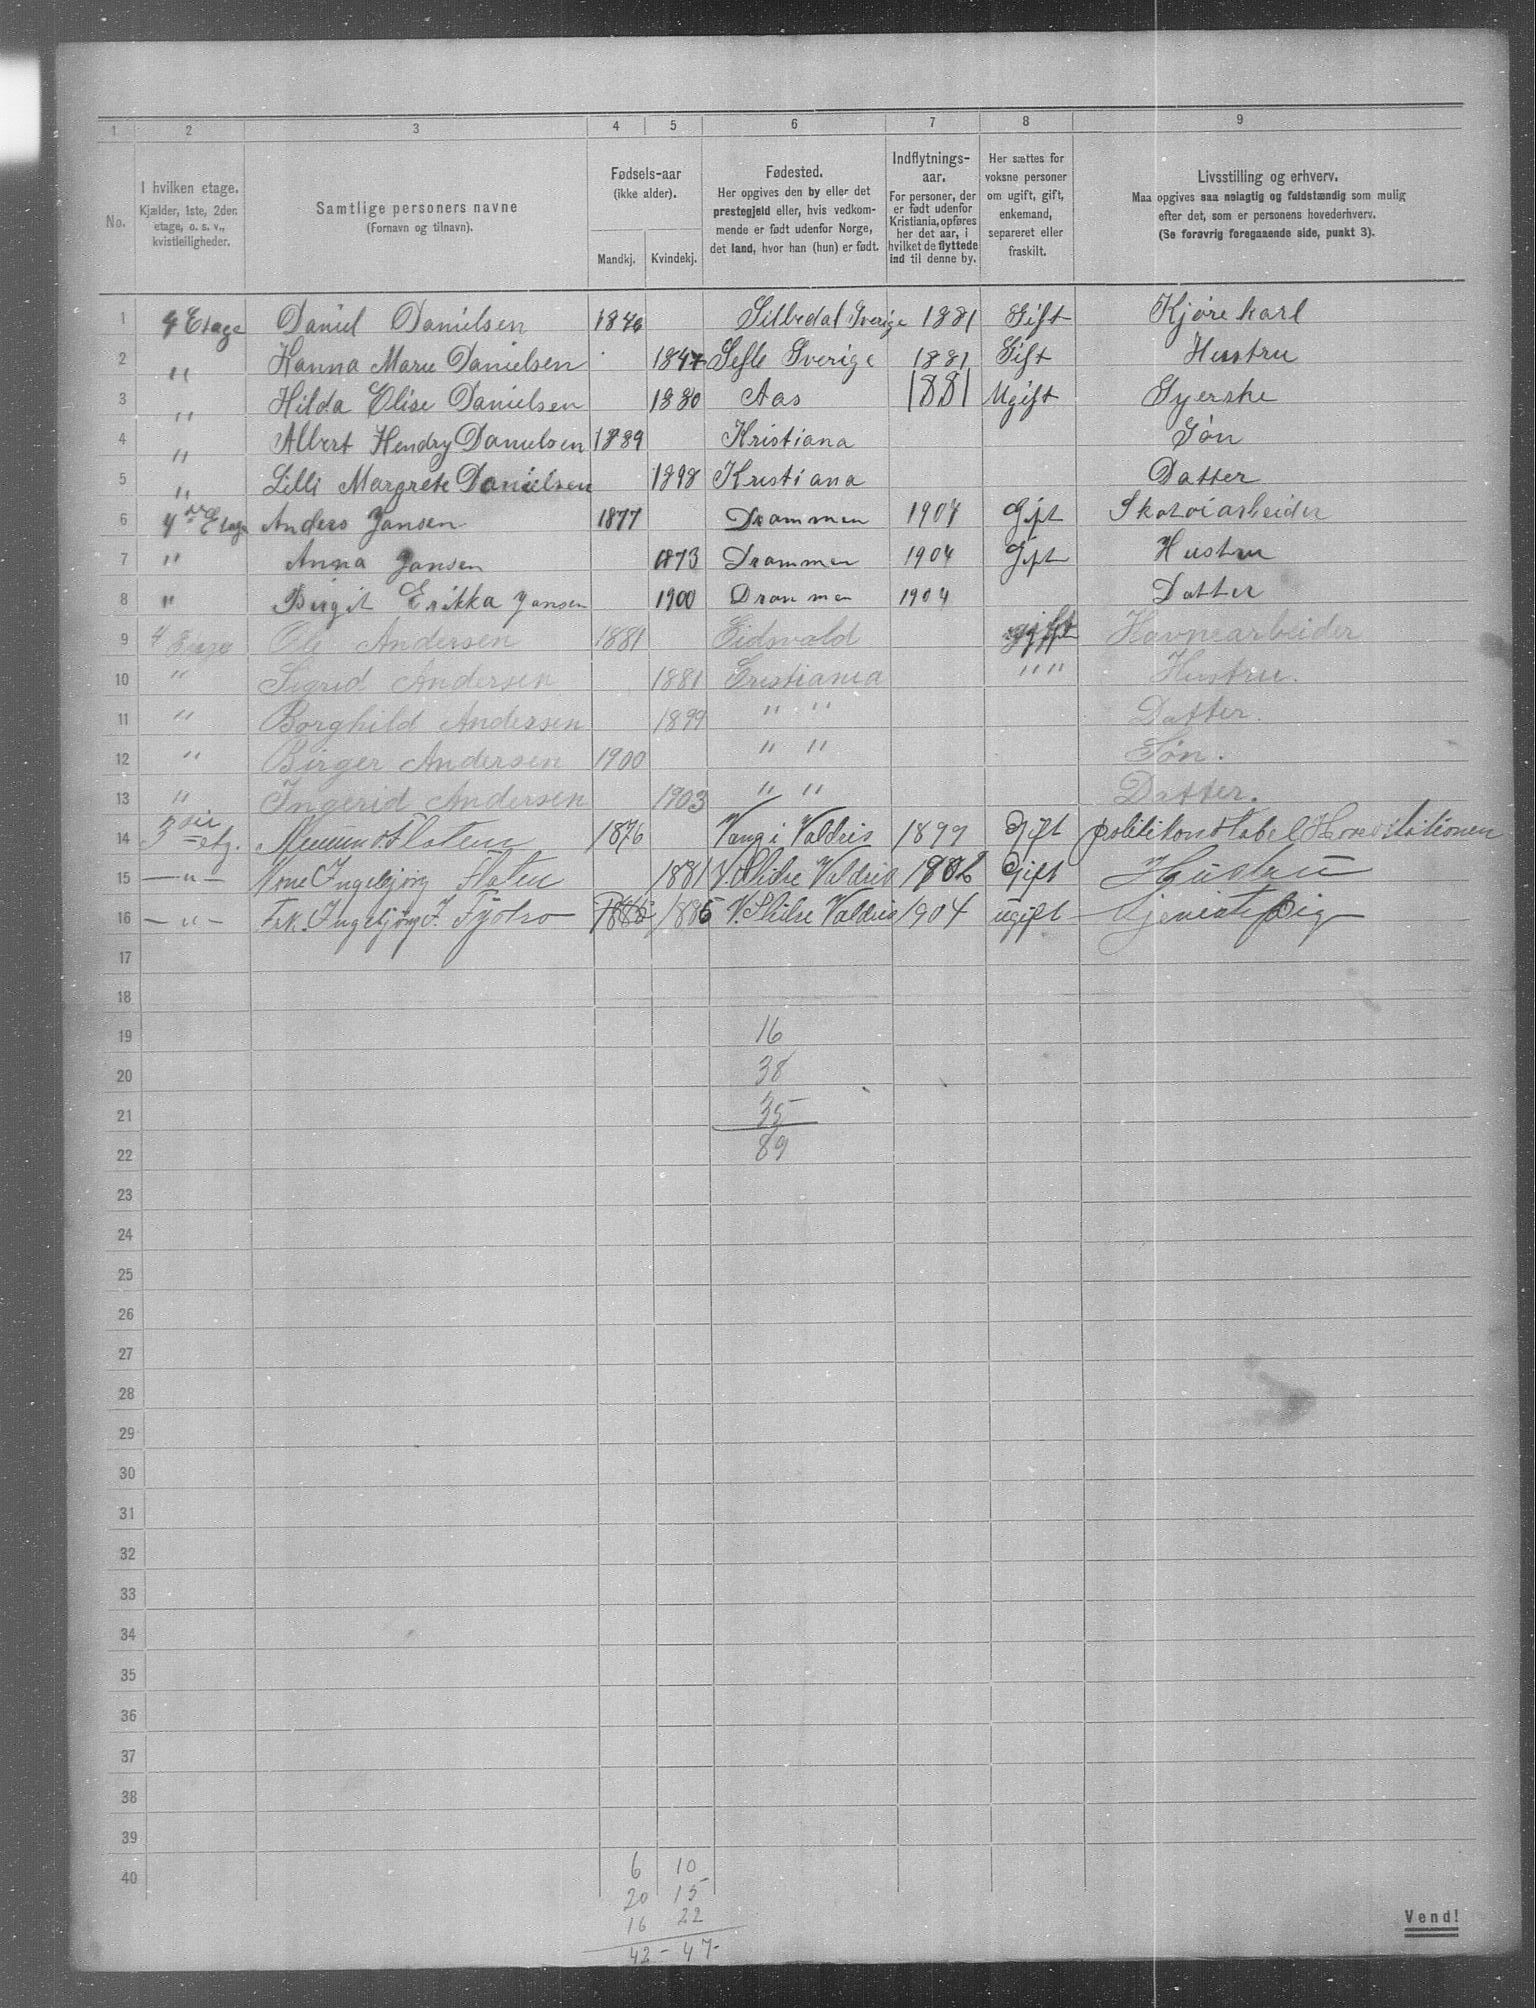 1 2 3 4 5 6 7 8 9
No.
I hvilken etage.
Kjælder, 1ste, 2den
etage, o. s. v.,
kvistleiligheder.
Samtlige personers navne
(Fornavn og tilnavn).
Fødsels-aar
(ikke alder).
Mandkj. Kvindekj.
Fødested.
Her opgives den by eller det
prestegjeld eller, hvis vedkom-
mende er født udenfor Norge,
det land, hvor han (hun) er født.
Indflytnings-
aar.
For personer, der
er født udenfor
Kristiania, opføres
her det aar, i
hvilket de flyttede
ind til denne by.
Her sættes for
voksne personer
om ugift, gift,
enkemand,
separeret eller
fraskilt.
Livsstilling og erhverv.
Maa opgives saa nøiagtig og fuldstændig som mulig
efter det, som er personens hovederhverv.
(Se forøvrig foregaaende side, punkt 3).
1 4 Etage Daniel Danielsen 1846 Silbedal Sverige 1881 Gift Kjørekarl
2 " Hanna Marie Danielsen 1847 Sefle Sverige 1881 Gift Hustru
3 " Hilda Elise Danielsen 1880 Aas 1881 Ugift Syerske
4 " Albert Hendry Danielsen 1889 Kristiana Søn
5 " Lilli Margrete Danielsen 1898 Kristiana Datter
6 4de Etage Anders Jansen 1877 Drammen 1904 Gift Skotøiarbeider
7 " Anna Jansen 1873 Drammen 1904 Gift Hustru
8 " Birgit Erikka Jansen 1900 Drammen 1904 Datter
9 4 Etage Ole Andersen 1881 Eidsvold gift Havnearbeider
10 " Sigrid Andersen 1881 Cristiania " " Hustru.
11 " Borghild Andersen 1899 " " Datter.
12 " Birger Andersen 1900 " " Søn.
13 " Ingerid Andersen 1903 " " Datter.
14 3die etg. Fløten 1876 Vang i Valdris 1899 Gift politikonstabel
15 — " — Kone Ingebjørg Fløten 1881 V. Slidre Valdris 1902 Gift Hustru
16 — " — Frk. Ingebjørg J. 1885 1885 V. Slidre Valdris 1904 ugift Tjenestepige
17
18
19 16
20 38
21 35
22 89
23
24
25
26
27
28
29
30
31
32
33
34
35
36
37
38
39
40 6 10
20 15
16 22
42 - 47-
Vend!